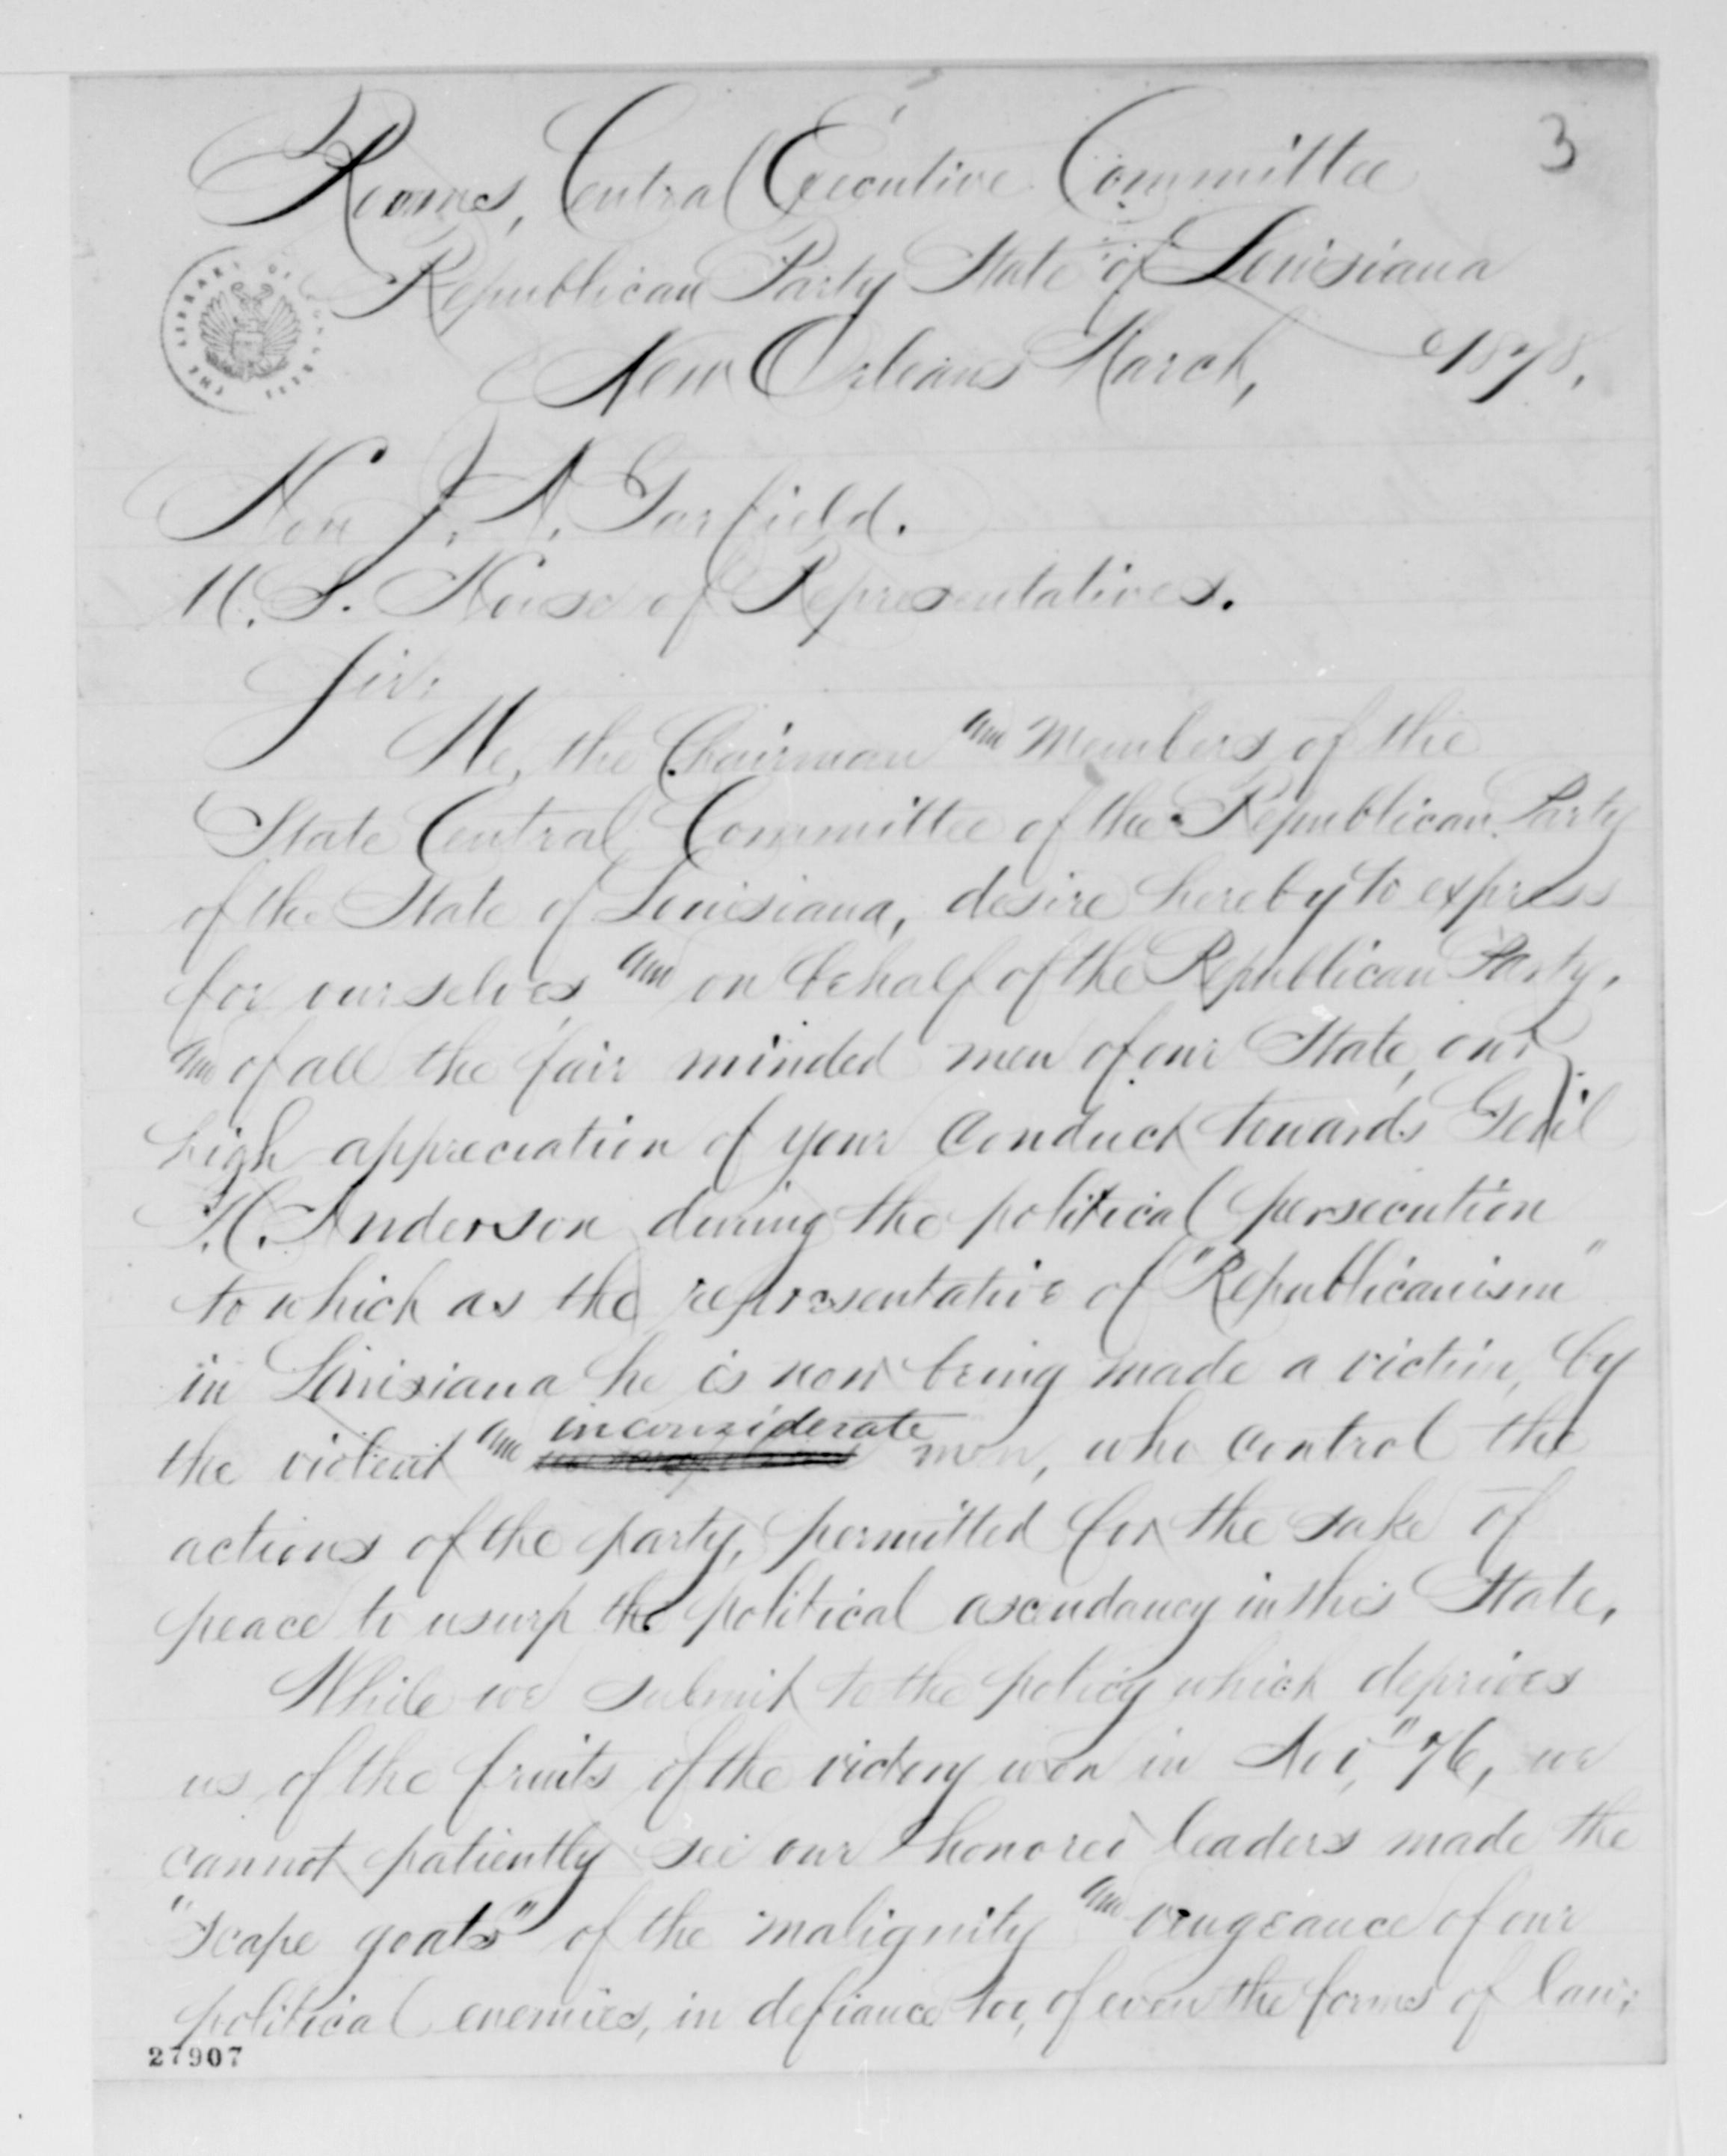 3
Rooms, Central Executive Committee
Republican Party State of Louisiana
New Orleans March, 1878.
THE LIBRARY OF CONGRESS
Hon J. A. Garfield.
U. S. House of Representatives.
Sir:
We, the Chairman and Members of the
State Central Committee of the Republican Party
of the State of Louisiana, desire hereby to express
for ourselves, and on behalf of the Republican Party,
and of all the fair minded men of our State, our
high appreciation of your Conduct towards Genl
T. C. Anderson during the political persecution
to which as the representative of "Republicanism"
in Louisiana he is now being made a victim, by
the violent and inconsiderate men, who control the
actions of the party, permitted for the sake of
peace to usurp the political ascendancy in this State.
While we submit to the policy which deprives
us of the fruits of the victory won in Nov, "76, we
cannot patiently see our honored leaders made the
"scape goats" of the malignity and vengeance of our
political enemies, in defiance too, of even the forms of law;
27907